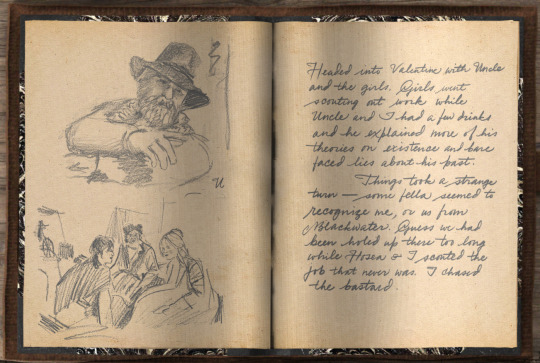 U
Headed into Valentine with Uncle
and the girls. Girls went
scouting out work while
Uncle and I had a few drinks
and he explained more of his
theories on existence and bare
faced lies about his past.
Things took a strange
turn — some fella seemed to
recognize me, or us from
Blackwater. Guess we had
been holed up there too long
while Hosea & I scouted the
job that never was. I chased
the bastard.